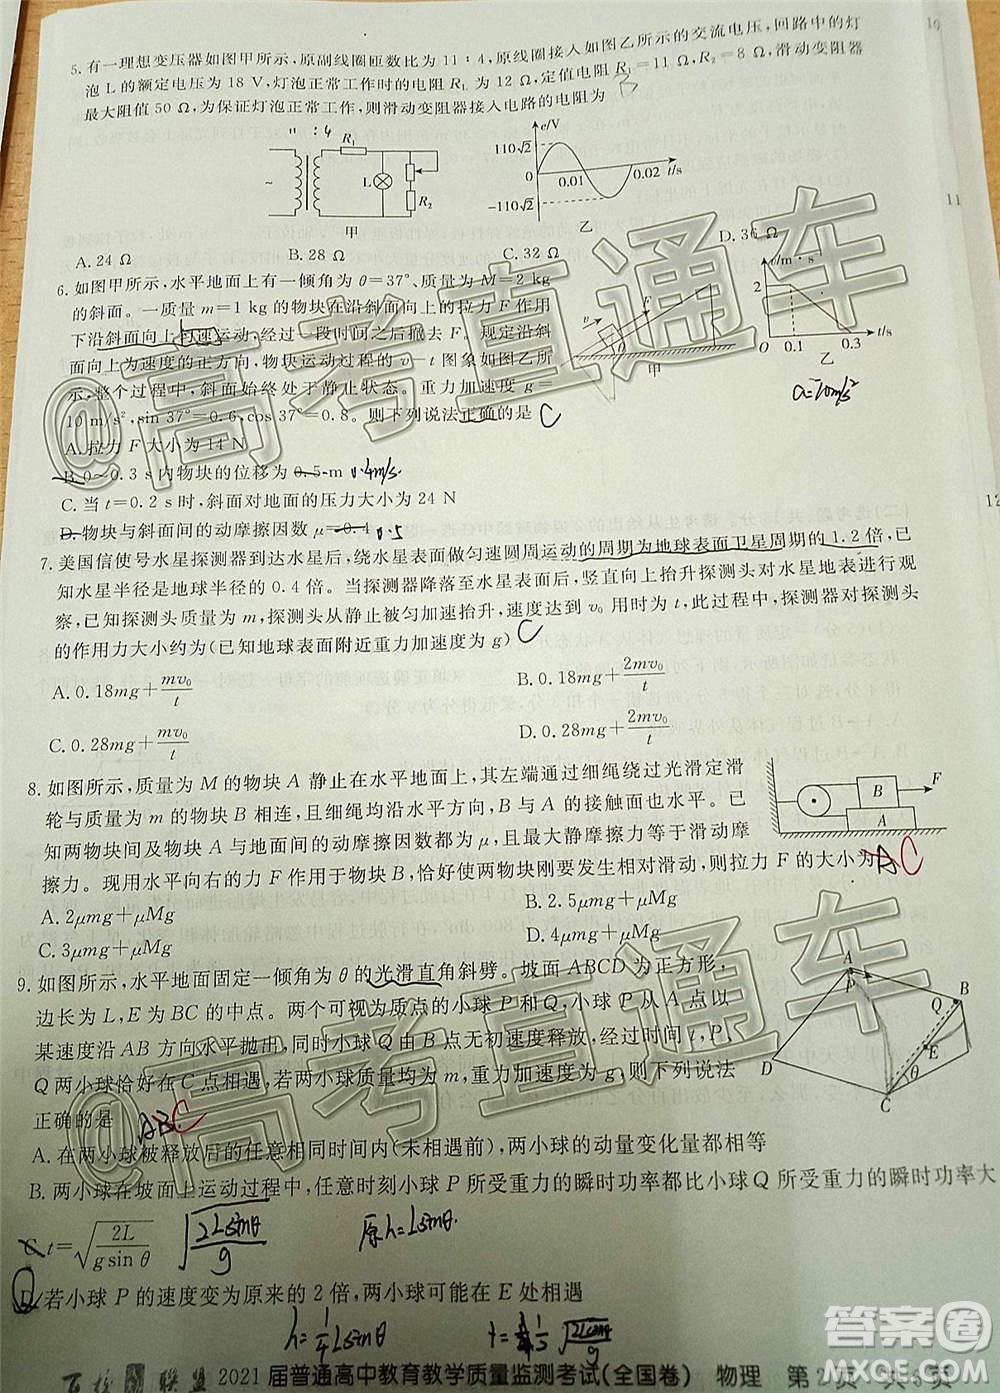 5. 有一理想变压器如图甲所示,原副线圈匝数比为 11∶4,原线圈接入如图乙所示的交流电压,回路中的灯
泡 L 的额定电压为 18 V,灯泡正常工作时的电阻 R_L 为 12 Ω,定值电阻 R₁=11 Ω,R₂=8 Ω,滑动变阻器
最大阻值 50 Ω,为保证灯泡正常工作,则滑动变阻器接入电路的电阻为 B
11 : 4
R₁
L
R₂
甲
e/V
110√2
0
-110√2
0.01
0.02
t/s
乙
A. 24 Ω B. 28 Ω C. 32 Ω D. 36 Ω
6. 如图甲所示,水平地面上有一倾角为 θ=37°、质量为 M=2 kg
的斜面。一质量 m=1 kg 的物块在沿斜面向上的拉力 F 作用
下沿斜面向上匀速运动,经过一段时间之后撤去 F。规定沿斜
面向上为速度的正方向,物块运动过程的 v-t 图象如图乙所
示,整个过程中,斜面始终处于静止状态。重力加速度 g=
10 m/s²,sin 37°=0.6,cos 37°=0.8。则下列说法正确的是 C
F
v
θ
甲
v/m·s⁻¹
2
O
0.1
0.3
t/s
乙
a=10m/s²
A. 拉力 F 大小为 14 N
B. 0~0.3 s 内物块的位移为 0.5 m 0.4m/s
C. 当 t=0.2 s 时,斜面对地面的压力大小为 24 N
D. 物块与斜面间的动摩擦因数 μ=0.4 0.5
7. 美国信使号水星探测器到达水星后,绕水星表面做匀速圆周运动的周期为地球表面卫星周期的 1.2 倍,已
知水星半径是地球半径的 0.4 倍。当探测器降落至水星表面后,竖直向上抬升探测头对水星表面进行观
察,已知探测头质量为 m,探测头从静止被匀加速抬升,速度达到 v₀ 用时为 t,此过程中,探测器对探测头
的作用力大小约为(已知地球表面附近重力加速度为 g) C
A. 0.18mg+mv₀/t B. 0.18mg+2mv₀/t
C. 0.28mg+mv₀/t D. 0.28mg+2mv₀/t
8. 如图所示,质量为 M 的物块 A 静止在水平地面上,其左端通过细绳绕过光滑定滑
轮与质量为 m 的物块 B 相连,且细绳均沿水平方向,B 与 A 的接触面也水平。已
知两物块间及物块 A 与地面间的动摩擦因数都为 μ,最大静摩擦力等于滑动摩
擦力。现用水平向右的力 F 作用于物块 B,使两物块刚要发生相对滑动,则拉力 F 的大小为 A C
B
F
A
A. 2μmg+μMg B. 2.5μmg+μMg
C. 3μmg+μMg D. 4μmg+μMg
9. 如图所示,水平地面固定一倾角为 θ 的光滑直角斜劈。坡面 ABCD 为正方形,
边长为 L,E 为 BC 的中点。两个可视为质点的小球 P 和 Q,小球 P 从 A 点以
某速度沿 AB 方向水平抛出,同时小球 Q 从 B 点无初速度释放,经过时间 t,P、
Q 两小球恰好在 C 点相遇,若两小球质量均为 m,重力加速度为 g,则下列说法
正确的是 AB C
A
P
B
Q
E
D
θ
C
A. 在两小球被释放后的任意相同时间内(未相遇前),两小球的动量变化量都相等
B. 两小球在坡面上运动过程中,任意时刻小球 P 所受重力的瞬时功率都比小球 Q 所受重力的瞬时功率大
C. t=√(2L/(g sin θ)) √(2Lsinθ/g) 原h=Lsinθ.
D. 若小球 P 的速度变为原来的 2 倍,两小球可能在 E 处相遇
h=1/4 Lsinθ
百校联盟 2021 届普通高中教育教学质量监测考试(全国卷) 物理 第 2 页
@高考直通车
@高考直通车
答案圈
MXQE.COM
10
11
12